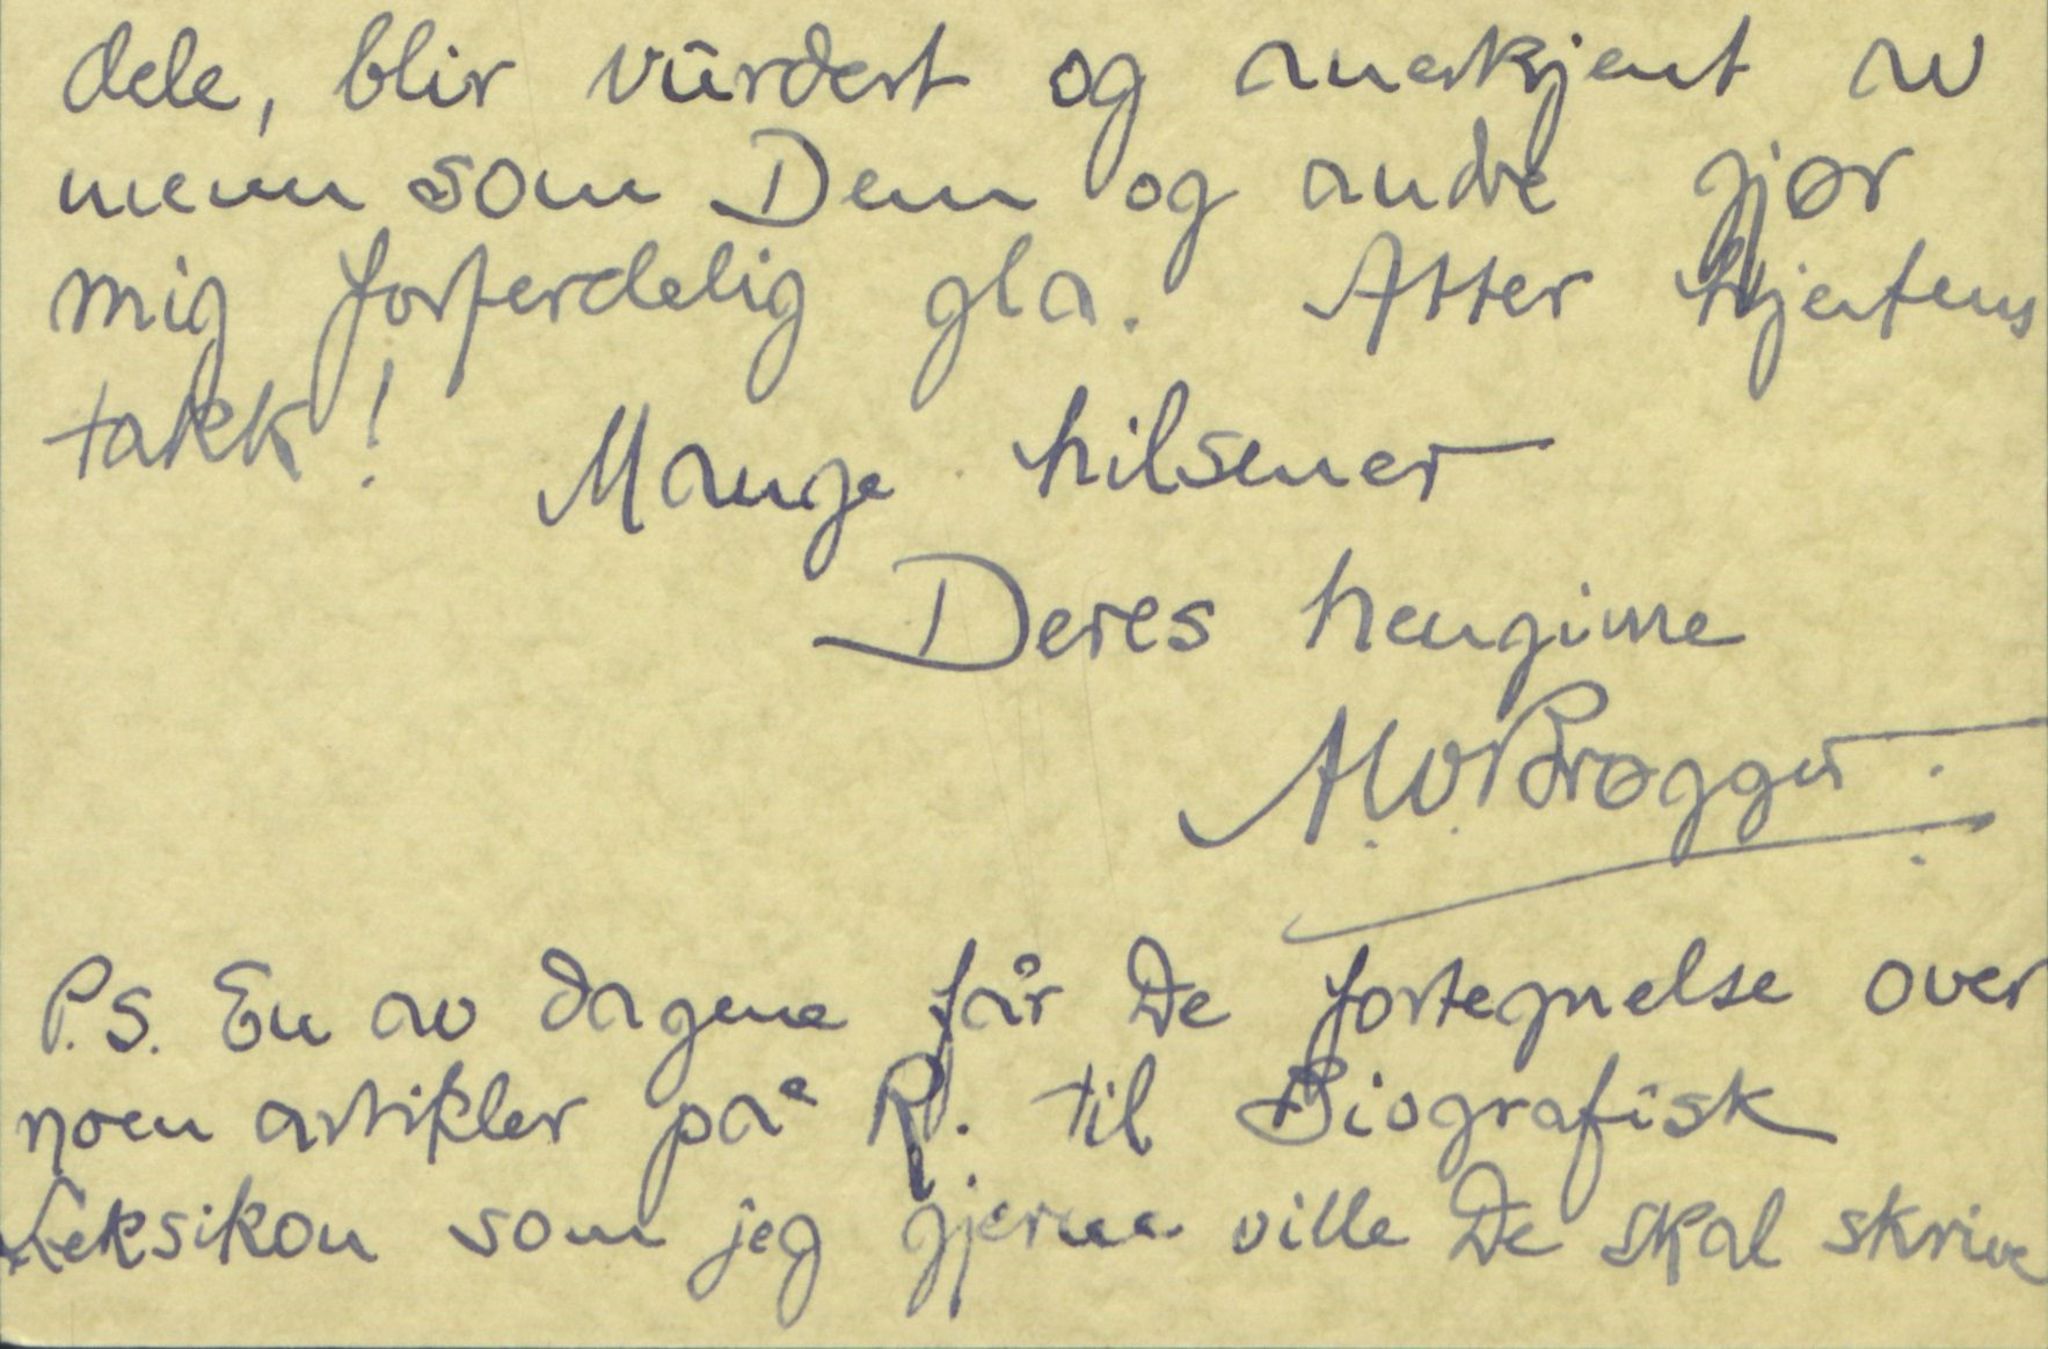 dele, blir vürdert og anerkjent av
menn som Dem og andre gjør
mig forferdelig gla. Atter hjertens
takk!
Mange hilsener
Deres hengivne
A.W. Brøgger.
P.S. En av dagene får De fortegnelse over
noen artikler på R. til Biografisk
Leksikon som jeg gjerne ville De skal skrive